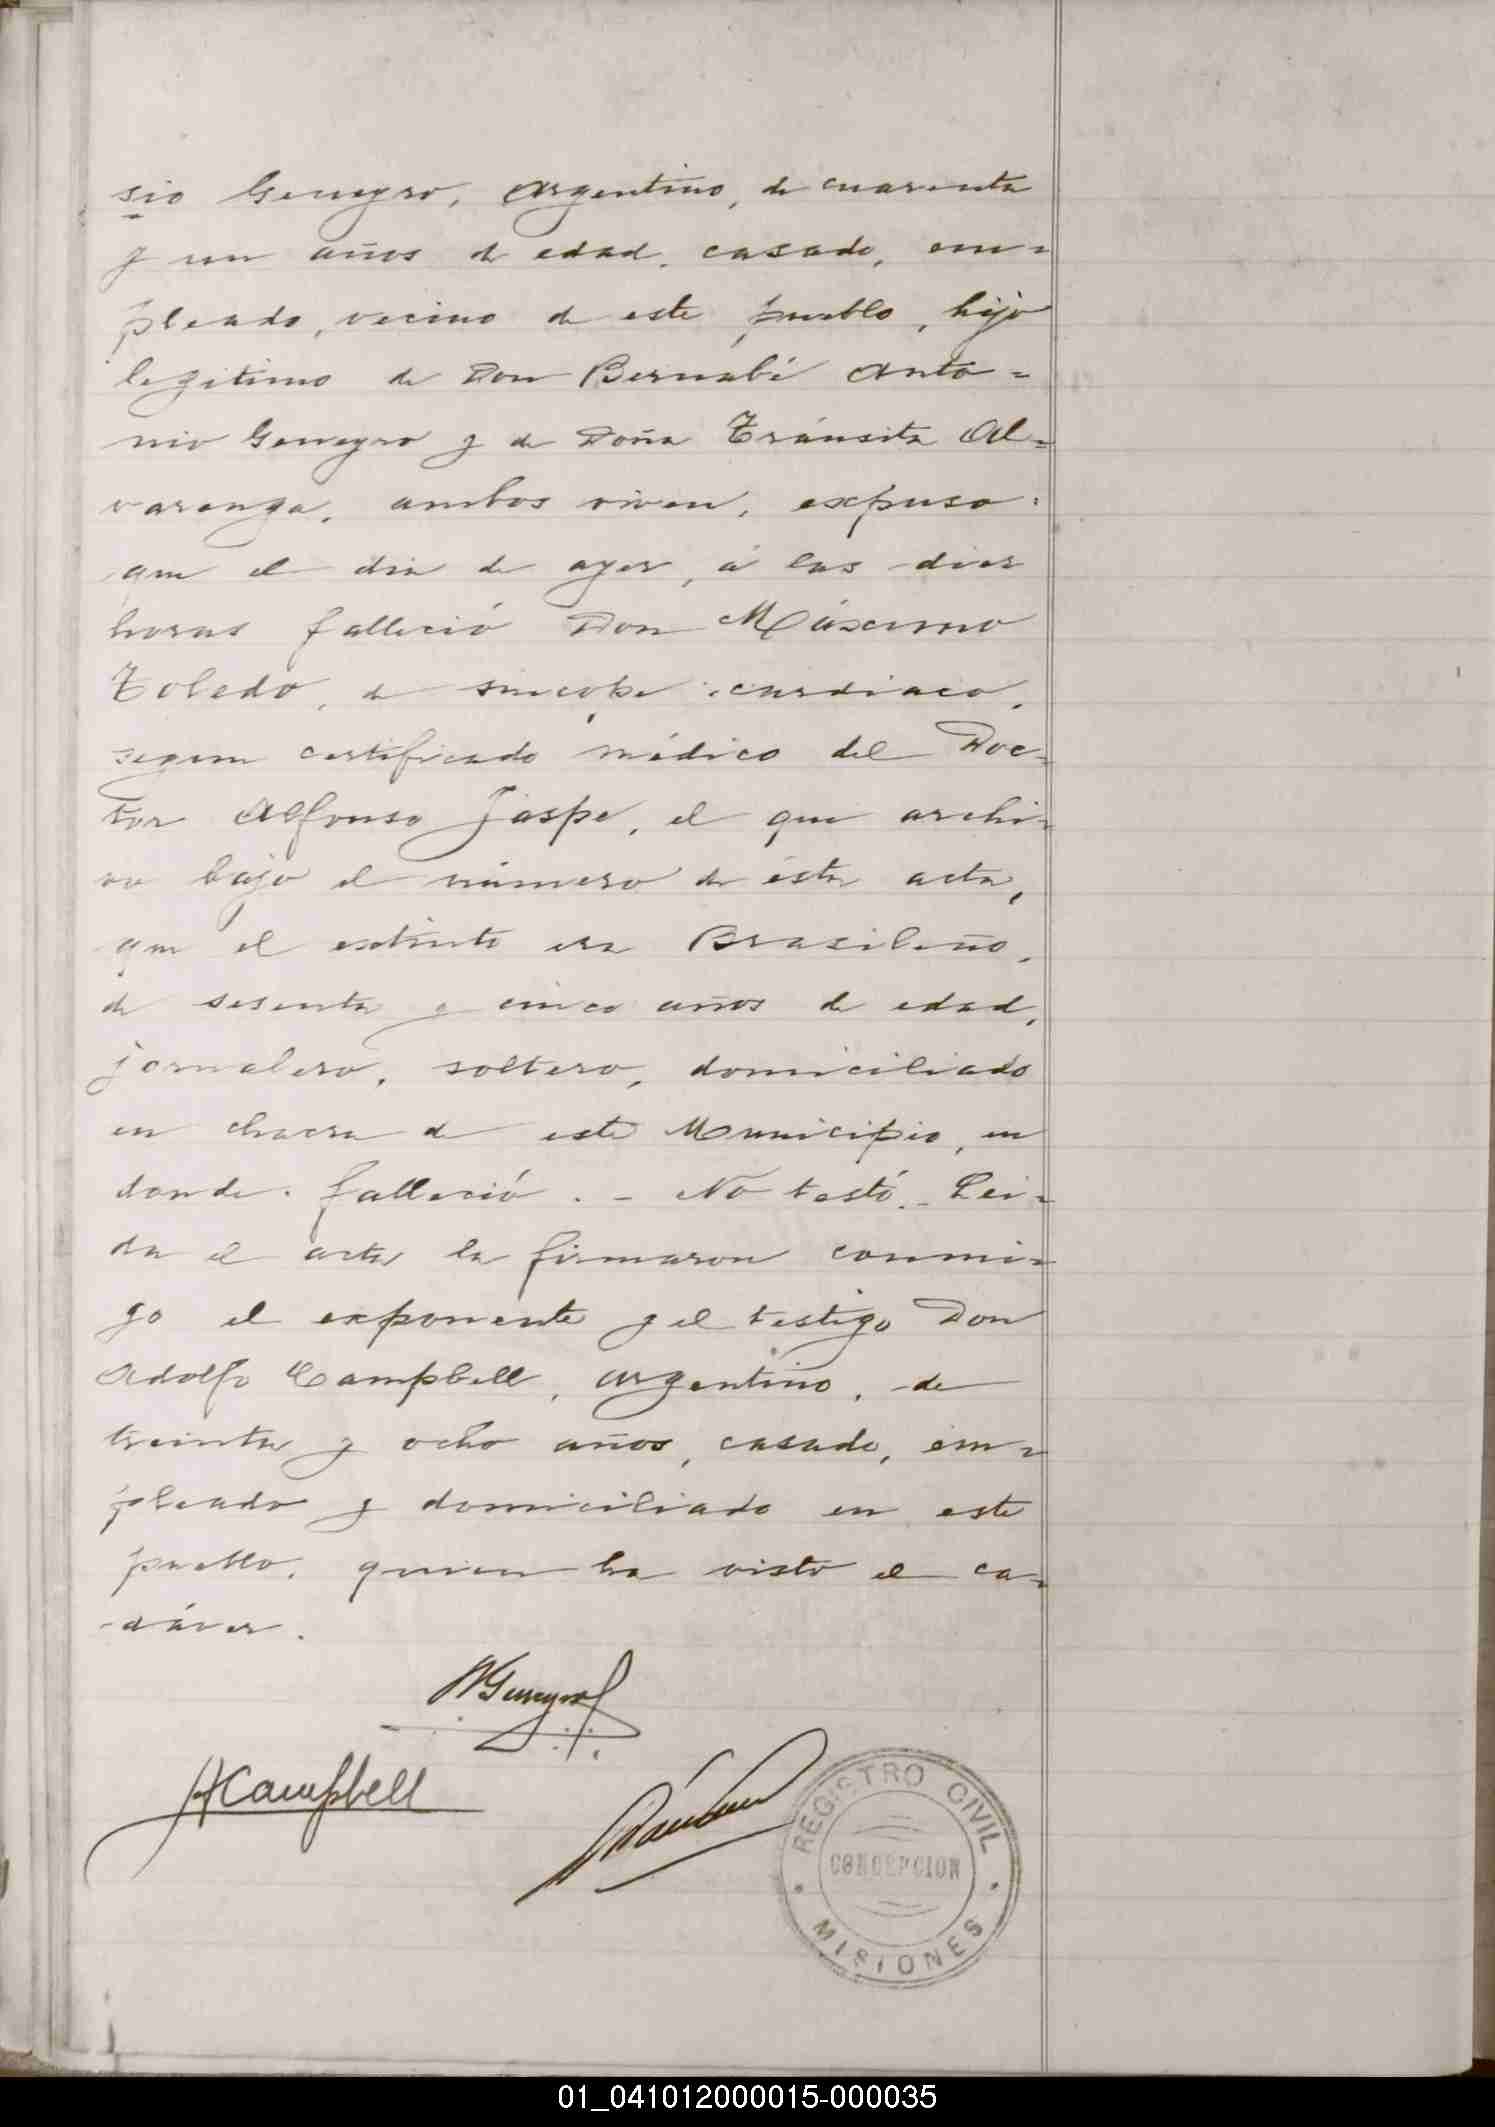 sio Geneyro, Argentino, de cuarenta
y un años de edad, casado, em=
pleado, vecino de este pueblo, hijo
legitimo de Don Bernabé Anto=
nio Geneyro y de Doña Tránsita Al=
varenga, ambos viven, expuso:
que el dia de ayer, á las diez
horas falleció Don Máximo
Toledo, de sincope cardiaco,
segun certificado médico del Doc=
tor Alfonso Jaspe, el que archi=
vo bajo el número de ésta acta,
que el extinto era Brasileño,
de sesenta y cinco años de edad,
jornalero, soltero, domiciliado
en chacra de este Municipio, en
donde falleció. - No testó. - Lei=
da el acta la firmaron conmi=
go el exponente y el testigo Don
Adolfo Campbell, argentino, de
treinta y ocho años, casado, em=
pleado y domiciliado en este
pueblo, quien ha visto el ca=
dáver.
Geneyro
ACampbell
REGISTRO CIVIL
CONCEPCION
MISIONES
01_041012000015-000035